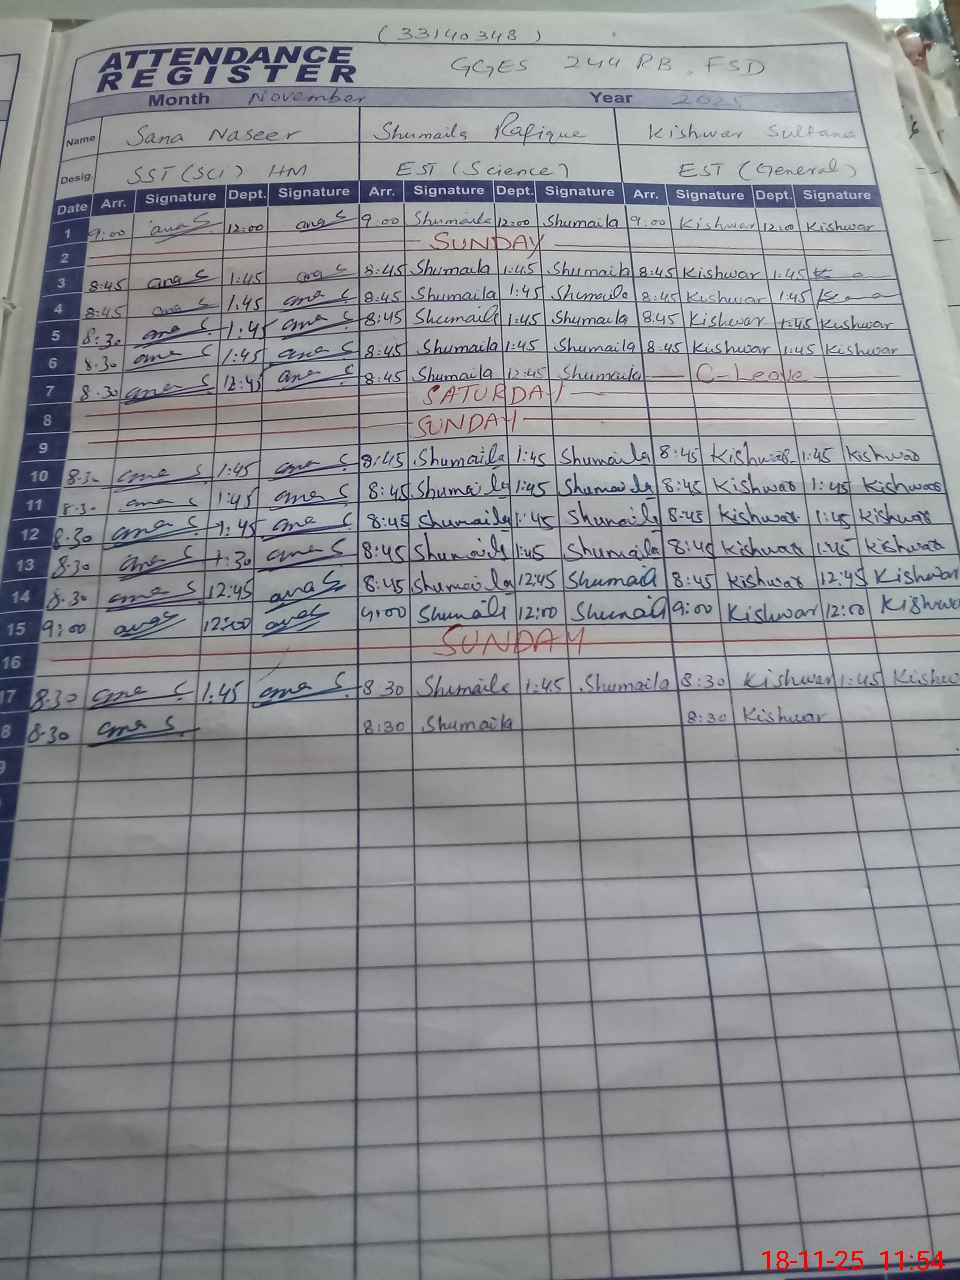 (33140348)
ATTENDANCE REGISTER
GGES 244 RB, FSD
Month November Year 2025
Name Sana Naseer Shumaila Rafique Kishwar Sultana
Desig. SST (SCI) HM EST (Science) EST (General)
Date Arr. Signature Dept. Signature Arr. Signature Dept. Signature Arr. Signature Dept. Signature
1 9:00 12:00 9:00 Shumaila 12:00 Shumaila 9:00 Kishwar 12:00 Kishwar
2 SUNDAY
3 8:45 1:45 8:45 Shumaila 1:45 Shumaila 8:45 Kishwar 1:45
4 8:45 1:45 8:45 Shumaila 1:45 Shumaila 8:45 Kishwar 1:45
5 8:30 1:45 8:45 Shumaila 1:45 Shumaila 8:45 Kishwar 1:45 Kishwar
6 8:30 1:45 8:45 Shumaila 1:45 Shumaila 8:45 Kishwar 1:45 Kishwar
7 8:30 12:45 8:45 Shumaila 12:45 Shumaila C-Leave
8 SATURDAY
9 SUNDAY
10 8:30 1:45 8:45 Shumaila 1:45 Shumaila 8:45 Kishwar 1:45 Kishwar
11 8:30 1:45 8:45 Shumaila 1:45 Shumaila 8:45 Kishwar 1:45 Kishwar
12 8:30 1:45 8:45 Shumaila 1:45 Shumaila 8:45 Kishwar 1:45 Kishwar
13 8:30 1:30 8:45 Shumaila 1:45 Shumaila 8:45 Kishwar 1:45 Kishwar
14 8:30 12:45 8:45 Shumaila 12:45 Shumaila 8:45 Kishwar 12:45 Kishwar
15 9:00 12:00 9:00 Shumaila 12:00 Shumaila 9:00 Kishwar 12:00 Kishwa
16 SUNDAY
17 8:30 1:45 8:30 Shumaila 1:45 Shumaila 8:30 Kishwar 1:45 Kishw
8 8:30 8:30 Shumaila 8:30 Kishwar
18-11-25 11:54